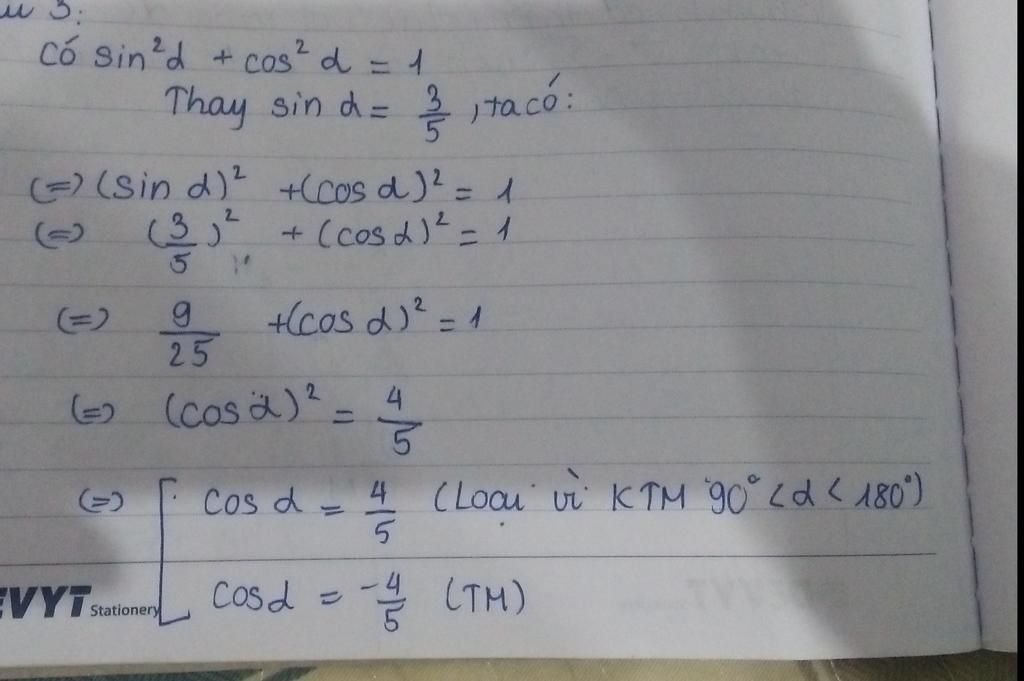 u 3:
Có sin²α + cos²α = 1
Thay sin α = 3/5, ta có:
(=) (sin α)² + (cos α)² = 1
(=) (3/5)² + (cos α)² = 1
(=) 9/25 + (cos α)² = 1
(=) (cos α)² = 4/5
(=) [ cos α = 4/5 (Loại vì KTM 90° < α < 180°)
cos α = -4/5 (TM)
EVYT Stationery